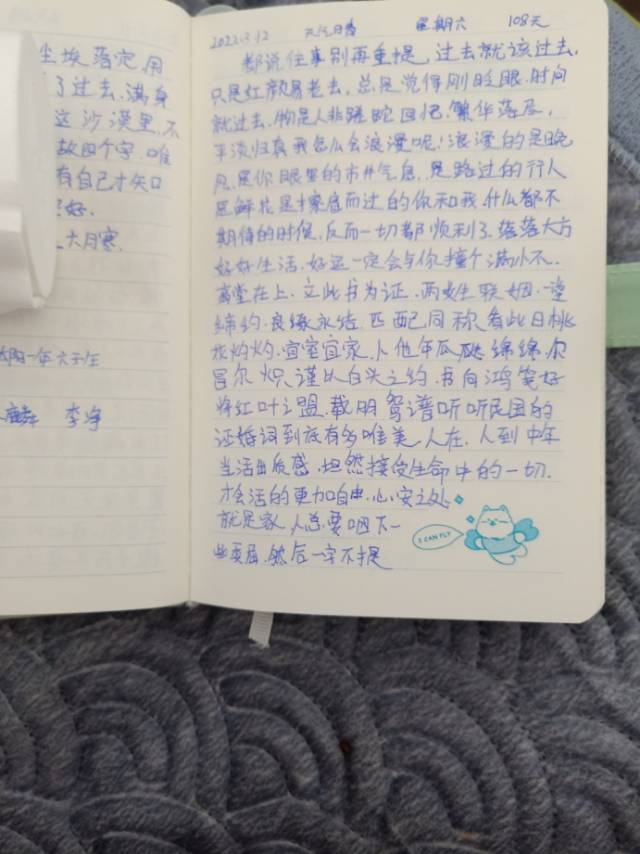 尘埃落定,用
了过去.满身
这沙漠里,不
故四个字.唯
有自己才矢口
好.
六月寒.
一年六
李
2022.3.12 天气日香 星期六 108天
都说往事别再重提,过去就该过去,
只是红颜易老去.总是觉得刚眨眼.时间
就过去.物是人非蹉跎回忆.繁华落尽,
平淡归真我怎么会浪漫呢!浪漫的是晚
风.是你眼里的市井气息.是路过的行人
是鲜花是擦肩而过的你和我什么都不
期待的时候.反而一切都顺利了.落落大方
好好生活.好运一定会与你撞个满怀.
高堂在上.立此书为证.两姓联姻.一堂
缔约.良缘永结.匹配同称.看此日桃
花灼灼.宜室宜家.卜他年瓜瓞绵绵.尔
昌尔炽.谨以白头之约.书向鸿笺好
将红叶之盟.载明鸳谱听听民国的
证婚词到底有多唯美.人在.人到中年
当活出质感.坦然接受生命中的一切.
才会活的更加自由.心安之处
就是家.人总要咽下一
些委屈.然后一字不提
I CAN FLY